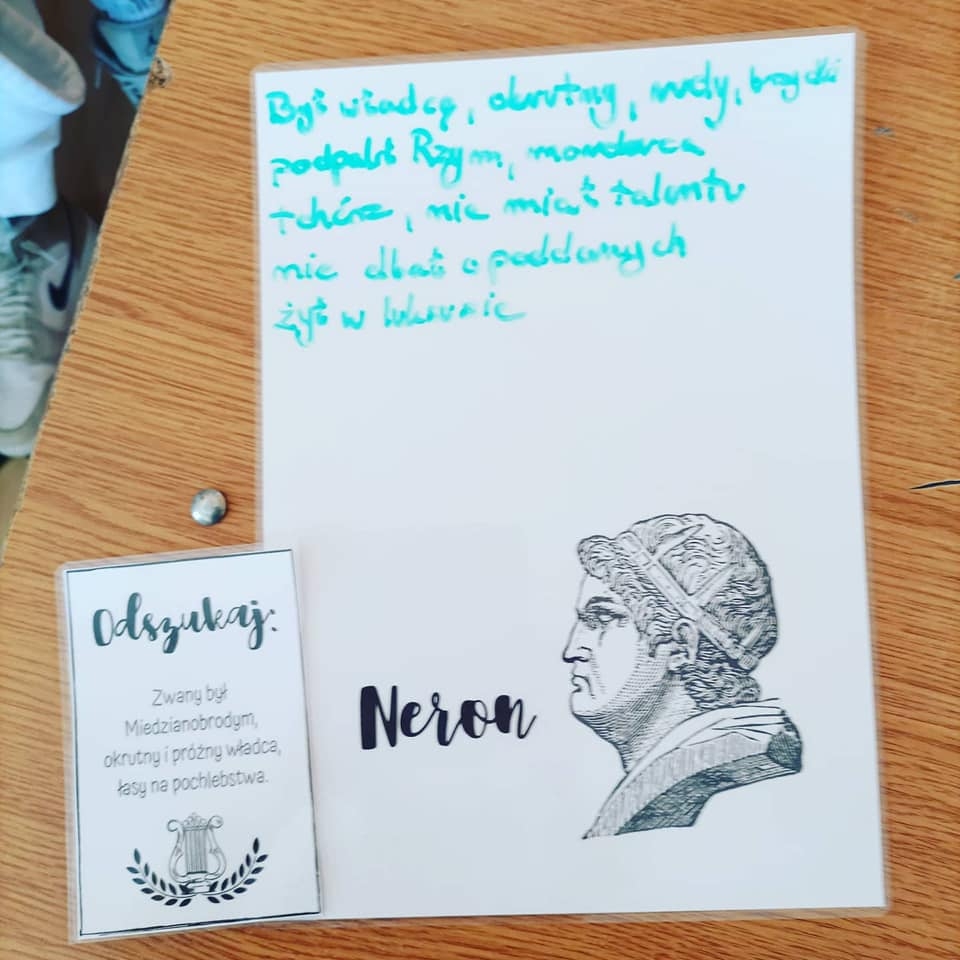 Był władcą, okrutny, rudy, brzydki
podpalił Rzym, morderca
tchórz, nie miał talentu
nie dbał o poddanych
żył w luksusie
Neron
Odszukaj:
Zwany był
Miedzianobrodym,
okrutny i próżny władca,
łasy na pochlebstwa.